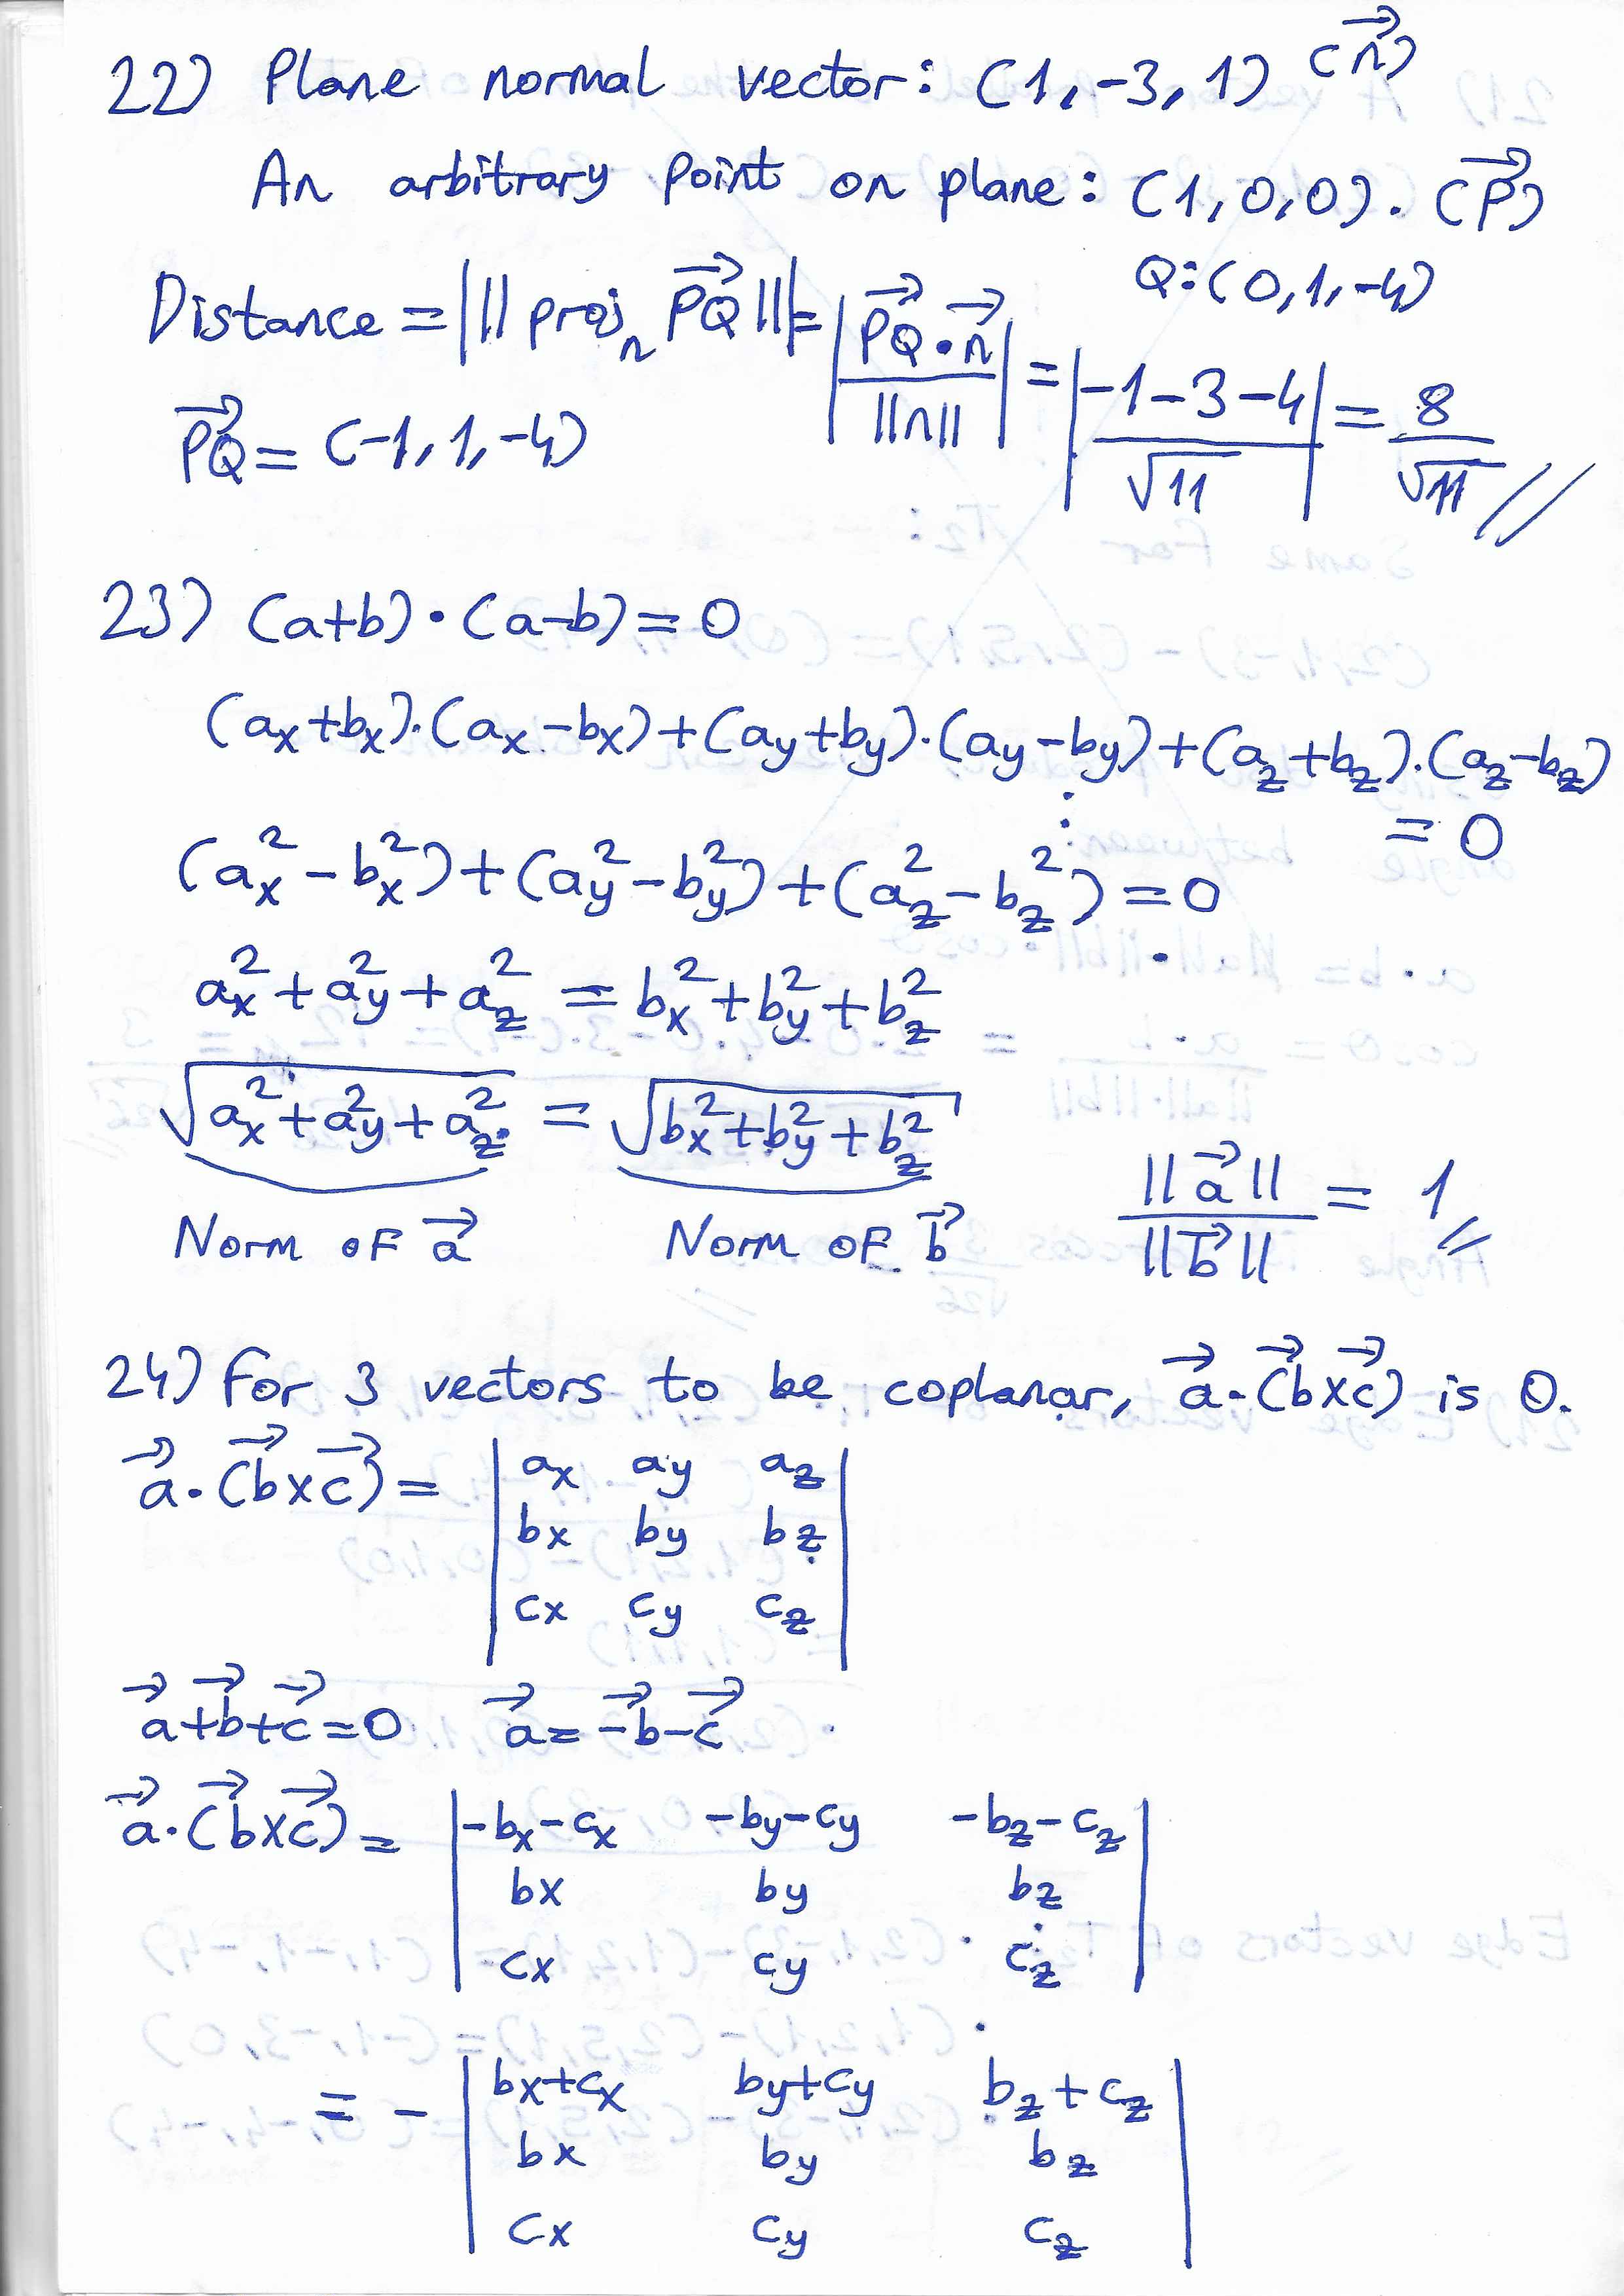 22) Plane normal vector: (1, -3, 1) (n⃗)
An arbitrary point on plane: (1, 0, 0). (P⃗)
Q: (0, 1, -4)
Distance = | || proj_n PQ⃗ || | = | PQ⃗ • n⃗ / ||n|| | = | -1-3-4 / √11 | = 8 / √11 //
PQ⃗ = (-1, 1, -4)
23) (a+b) • (a-b) = 0
(a_x+b_x).(a_x-b_x)+(a_y+b_y).(a_y-b_y)+(a_z+b_z).(a_z-b_z)
= 0
(a_x²-b_x²)+(a_y²-b_y²)+(a_z²-b_z²)=0
a_x²+a_y²+a_z² = b_x²+b_y²+b_z²
√(a_x²+a_y²+a_z²) = √(b_x²+b_y²+b_z²)
Norm of a⃗ Norm of b⃗ ||a⃗|| / ||b⃗|| = 1 //
24) For 3 vectors to be coplanar, a⃗.(b⃗xc⃗) is 0.
a⃗.(b⃗xc⃗) = | a_x a_y a_z |
| b_x b_y b_z |
| c_x c_y c_z |
a⃗+b⃗+c⃗=0 a⃗=-b⃗-c⃗
a⃗.(b⃗xc⃗) = | -b_x-c_x -b_y-c_y -b_z-c_z |
| b_x b_y b_z |
| c_x c_y c_z |
= - | b_x+c_x b_y+c_y b_z+c_z |
| b_x b_y b_z |
| c_x c_y c_z |